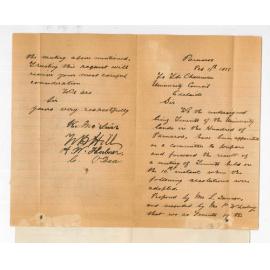 the meeting above mentioned,
trusting this request will
receive your most careful
consideration
We are
Sir
yours very respectfully
W B Hill
O'Dea
Parnaroo
To the Chairman
University Council
Adelaide
Sir
We the undersigned
being Tenants of the University
lands in the Hundred of
Parnaroo, have been appointed
as a committee to prepare
and forward the result of
a meeting of Tenants held on
the instant when the
following resolutions were
adopted.
Proposed by Mr
and seconded by Mr
that we as Tenants of the